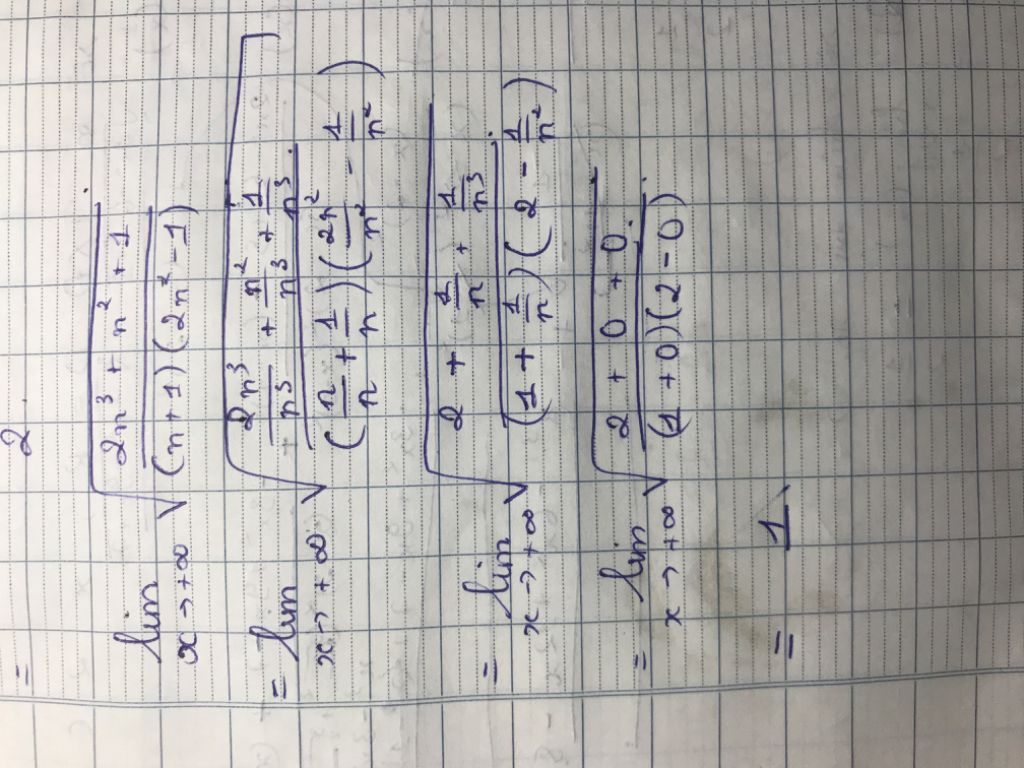 = 2
lim x→+∞ √((2n³ + n² + 1)/((n+1)(2n² - 1)))
= lim x→+∞ √((2n³/n³ + n²/n³ + 1/n³)/((n/n + 1/n)(2n²/n² - 1/n²)))
= lim x→+∞ √((2 + 1/n + 1/n³)/((1 + 1/n)(2 - 1/n²)))
= lim x→+∞ √((2 + 0 + 0)/((1 + 0)(2 - 0)))
= 1